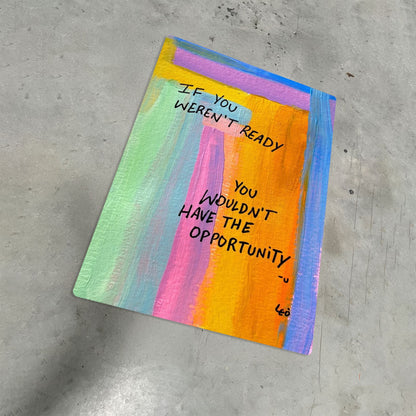 IF YOU
WEREN'T READY
YOU
WOULDN'T
HAVE THE
OPPORTUNITY
-U
LEO